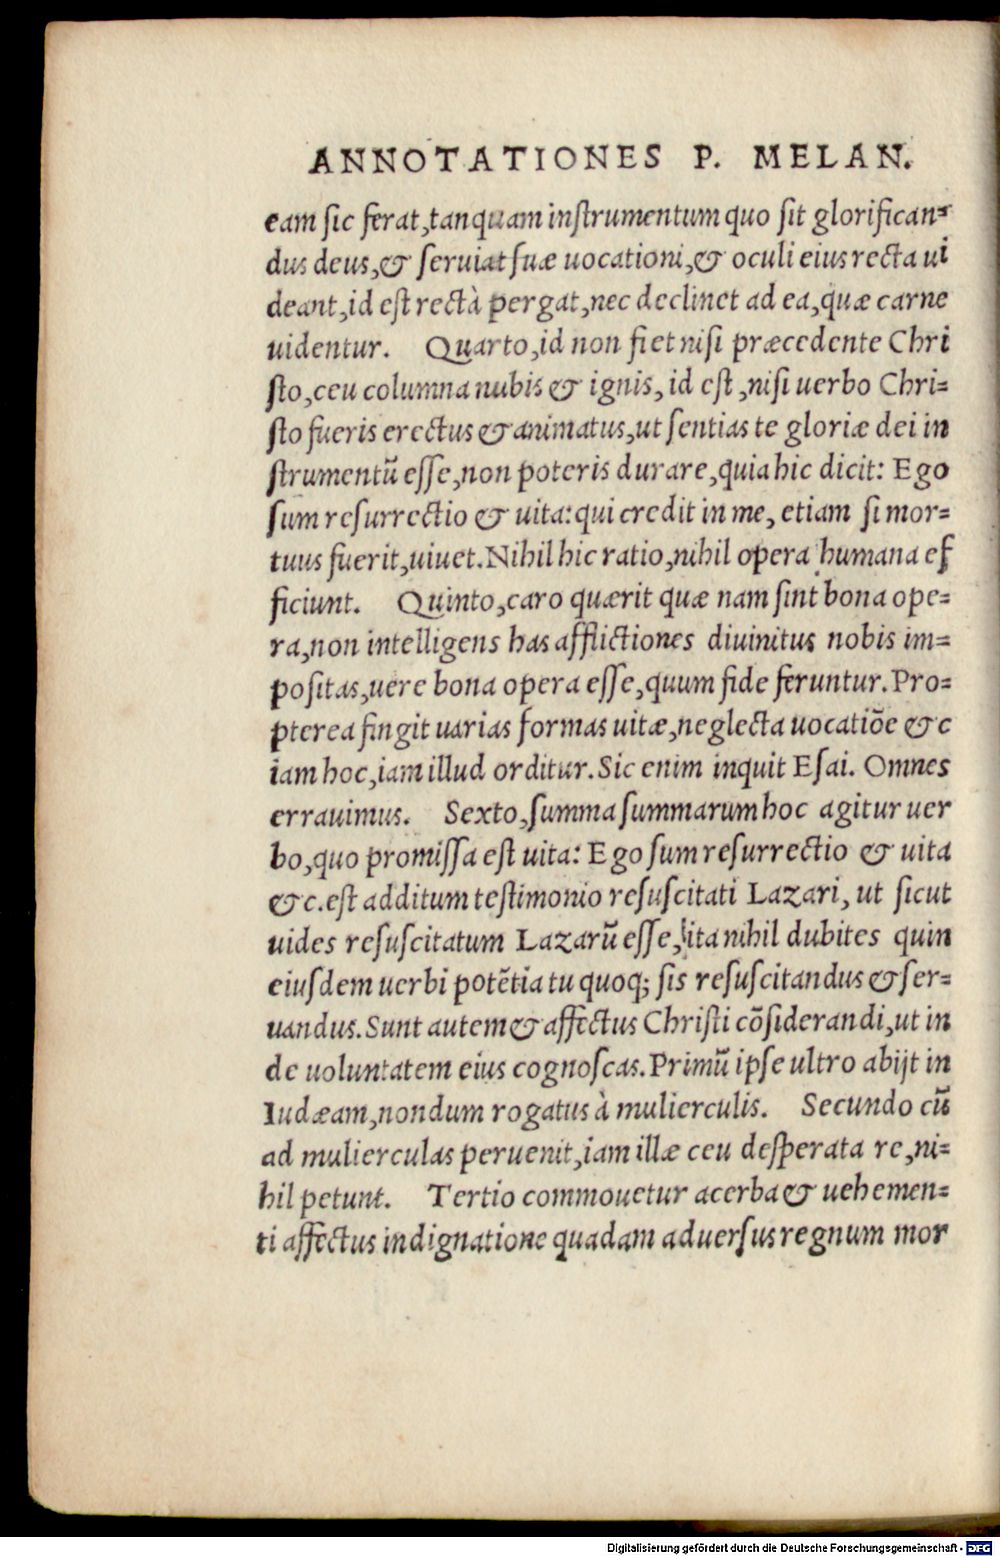 ANNOTATIONES P. MELAN.
eam sic ferat, tanquam instrumentum quo sit glorifican=
dus deus, & seruiat suæ uocationi, & oculi eius recta ui
deant, id est rectà pergat, nec declinet ad ea, quæ carne
uidentur. Quarto, id non fiet nisi præcedente Chri
sto, ceu columna nubis & ignis, id est, nisi uerbo Chri=
sto fueris erectus & animatus, ut sentias te gloriæ dei in
strumentū esse, non poteris durare, quia hic dicit: Ego
sum resurrectio & uita: qui credit in me, etiam si mor=
tuus fuerit, uiuet. Nihil hic ratio, nihil opera humana ef
ficiunt. Quinto, caro quærit quæ nam sint bona ope=
ra, non intelligens has afflictiones diuinitus nobis im=
positas, uere bona opera esse, quum fide feruntur. Pro=
pterea fingit uarias formas uitæ, neglecta uocatiōe & c
iam hoc, iam illud orditur. Sic enim inquit Esai. Omnes
errauimus. Sexto, summa summarum hoc agitur uer
bo, quo promissa est uita: Ego sum resurrectio & uita
& c. est additum testimonio resuscitati Lazari, ut sicut
uides resuscitatum Lazarū esse, ita nihil dubites quin
eiusdem uerbi potētia tu quoq; sis resuscitandus & ser=
uandus. Sunt autem & affectus Christi cōsiderandi, ut in
de uoluntatem eius cognoscas. Primū ipse ultro abijt in
Iudæam, nondum rogatus à mulierculis. Secundo cū
ad mulierculas peruenit, iam illæ ceu desperata re, ni=
hil petunt. Tertio commouetur acerba & uehemen=
ti affectus indignatione quadam aduersus regnum mor
Digitalisierung gefördert durch die Deutsche Forschungsgemeinschaft - DFG